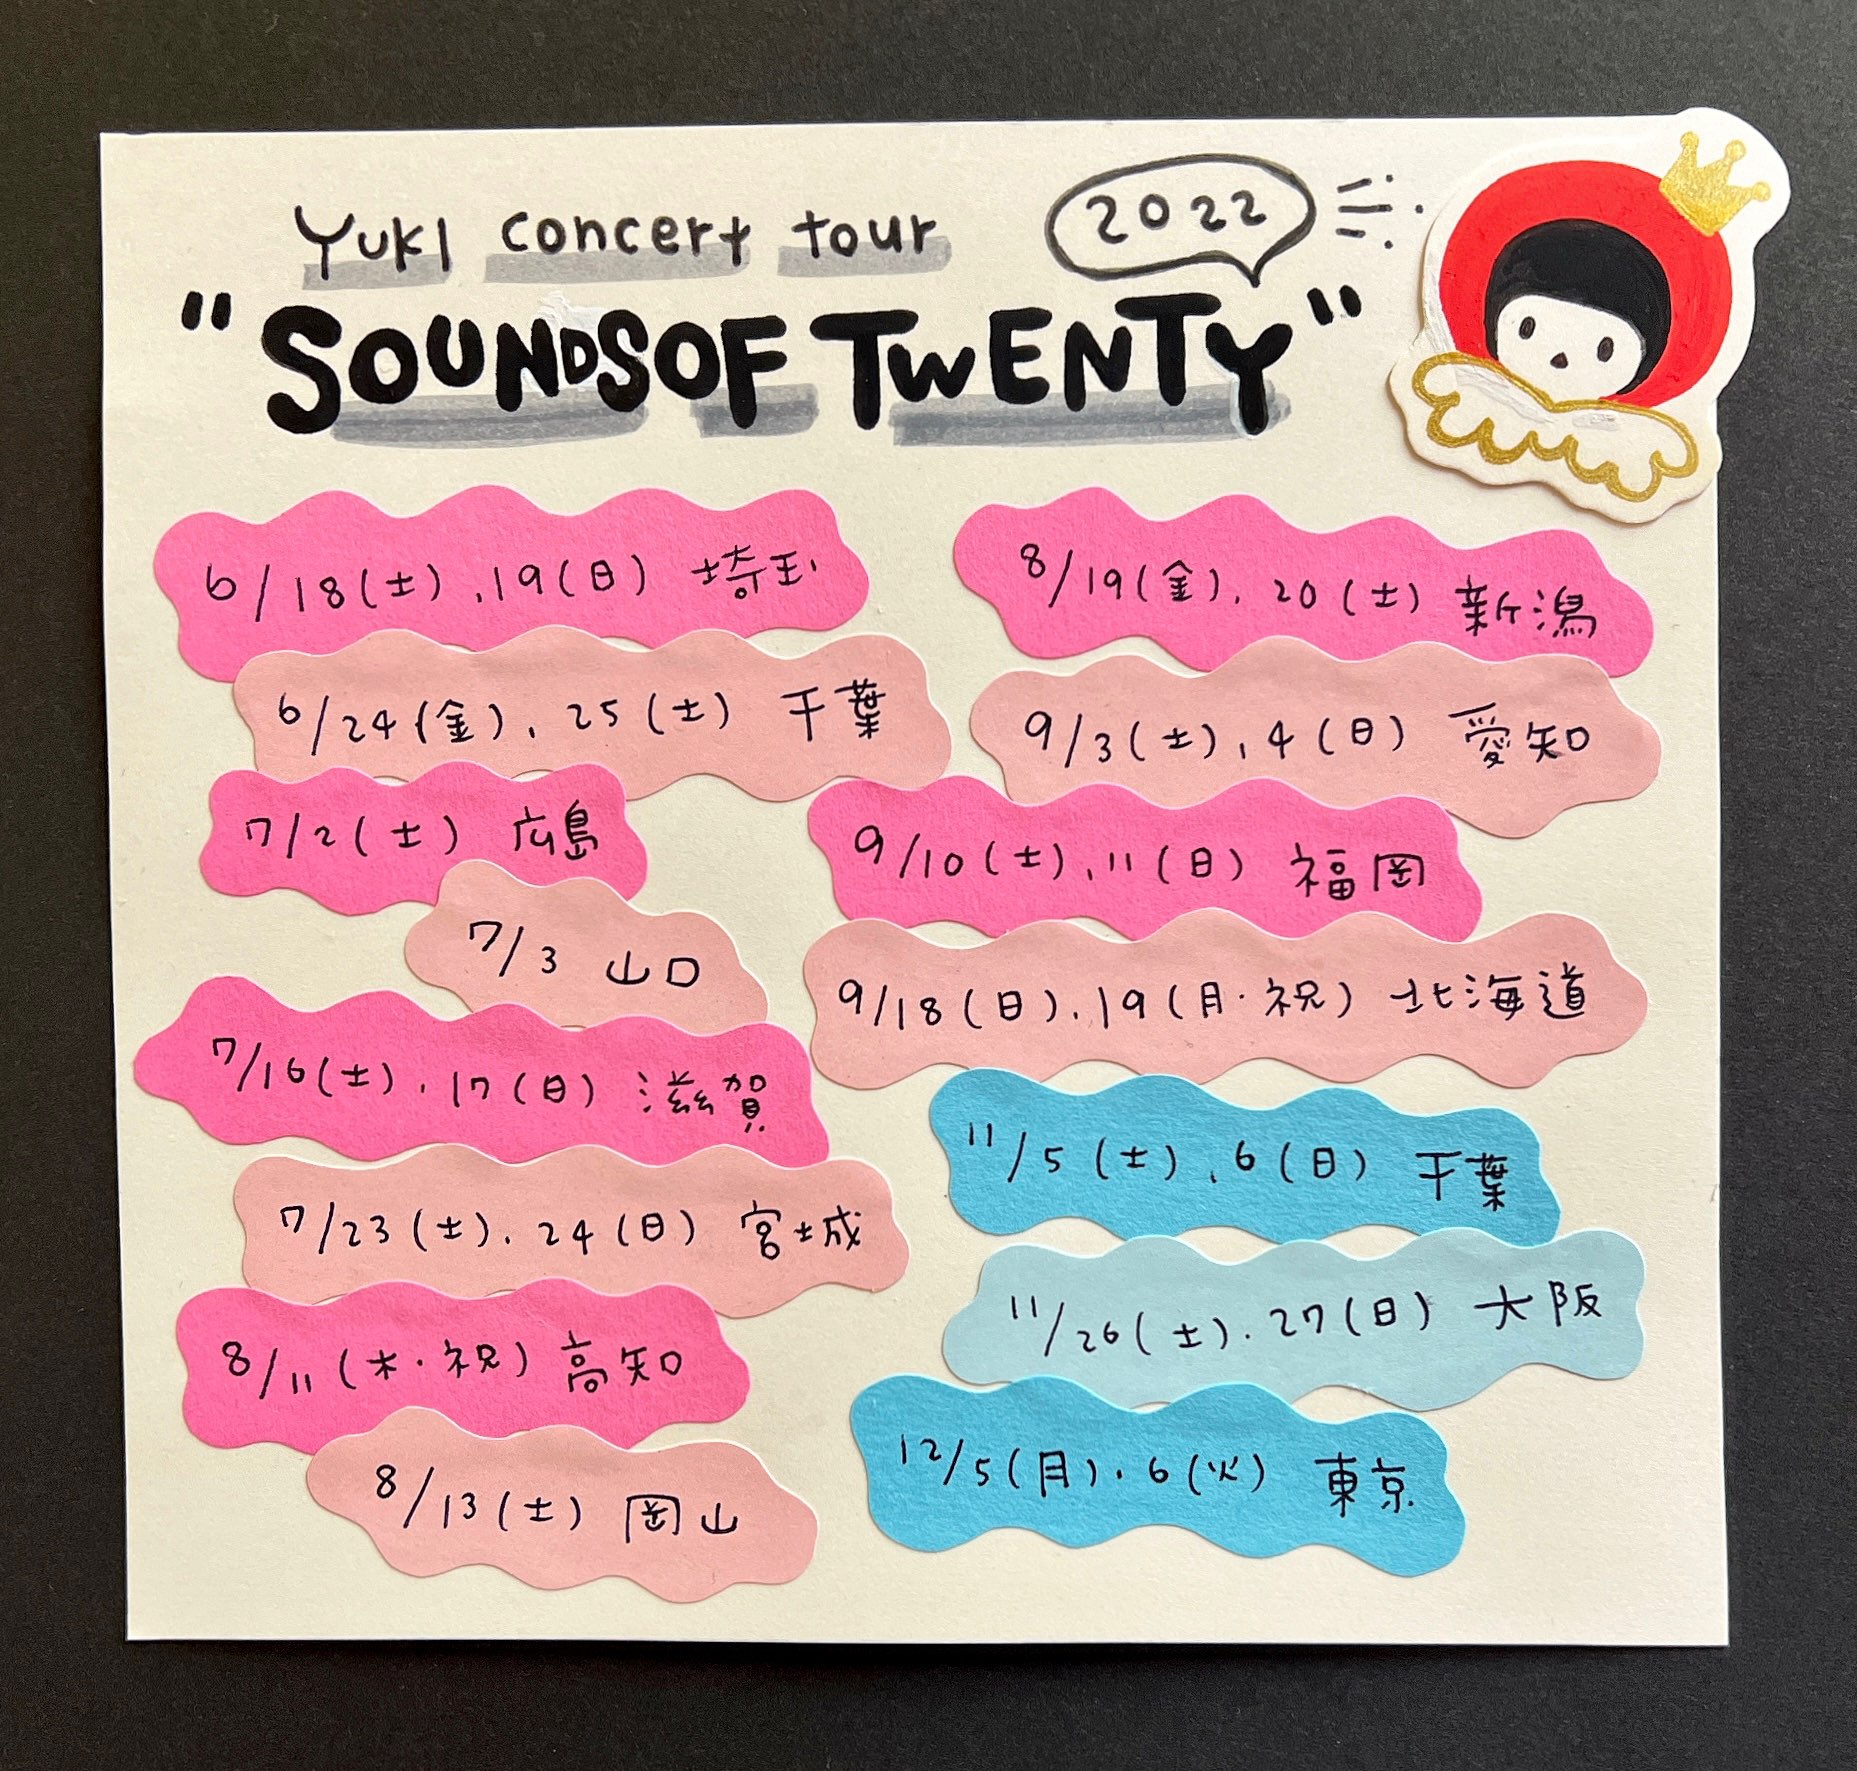 YUKI concert tour
2022
"SOUNDS OF TWENTY"
6/18(土)、19(日) 埼玉
6/24(金)、25(土) 千葉
7/2(土) 広島
7/3 山口
7/16(土)、17(日) 滋賀
7/23(土)、24(日) 宮城
8/11(木・祝) 高知
8/13(土) 岡山
8/19(金)、20(土) 新潟
9/3(土)、4(日) 愛知
9/10(土)、11(日) 福岡
9/18(日)、19(月・祝) 北海道
11/5(土)、6(日) 千葉
11/26(土)、27(日) 大阪
12/5(月)、6(火) 東京